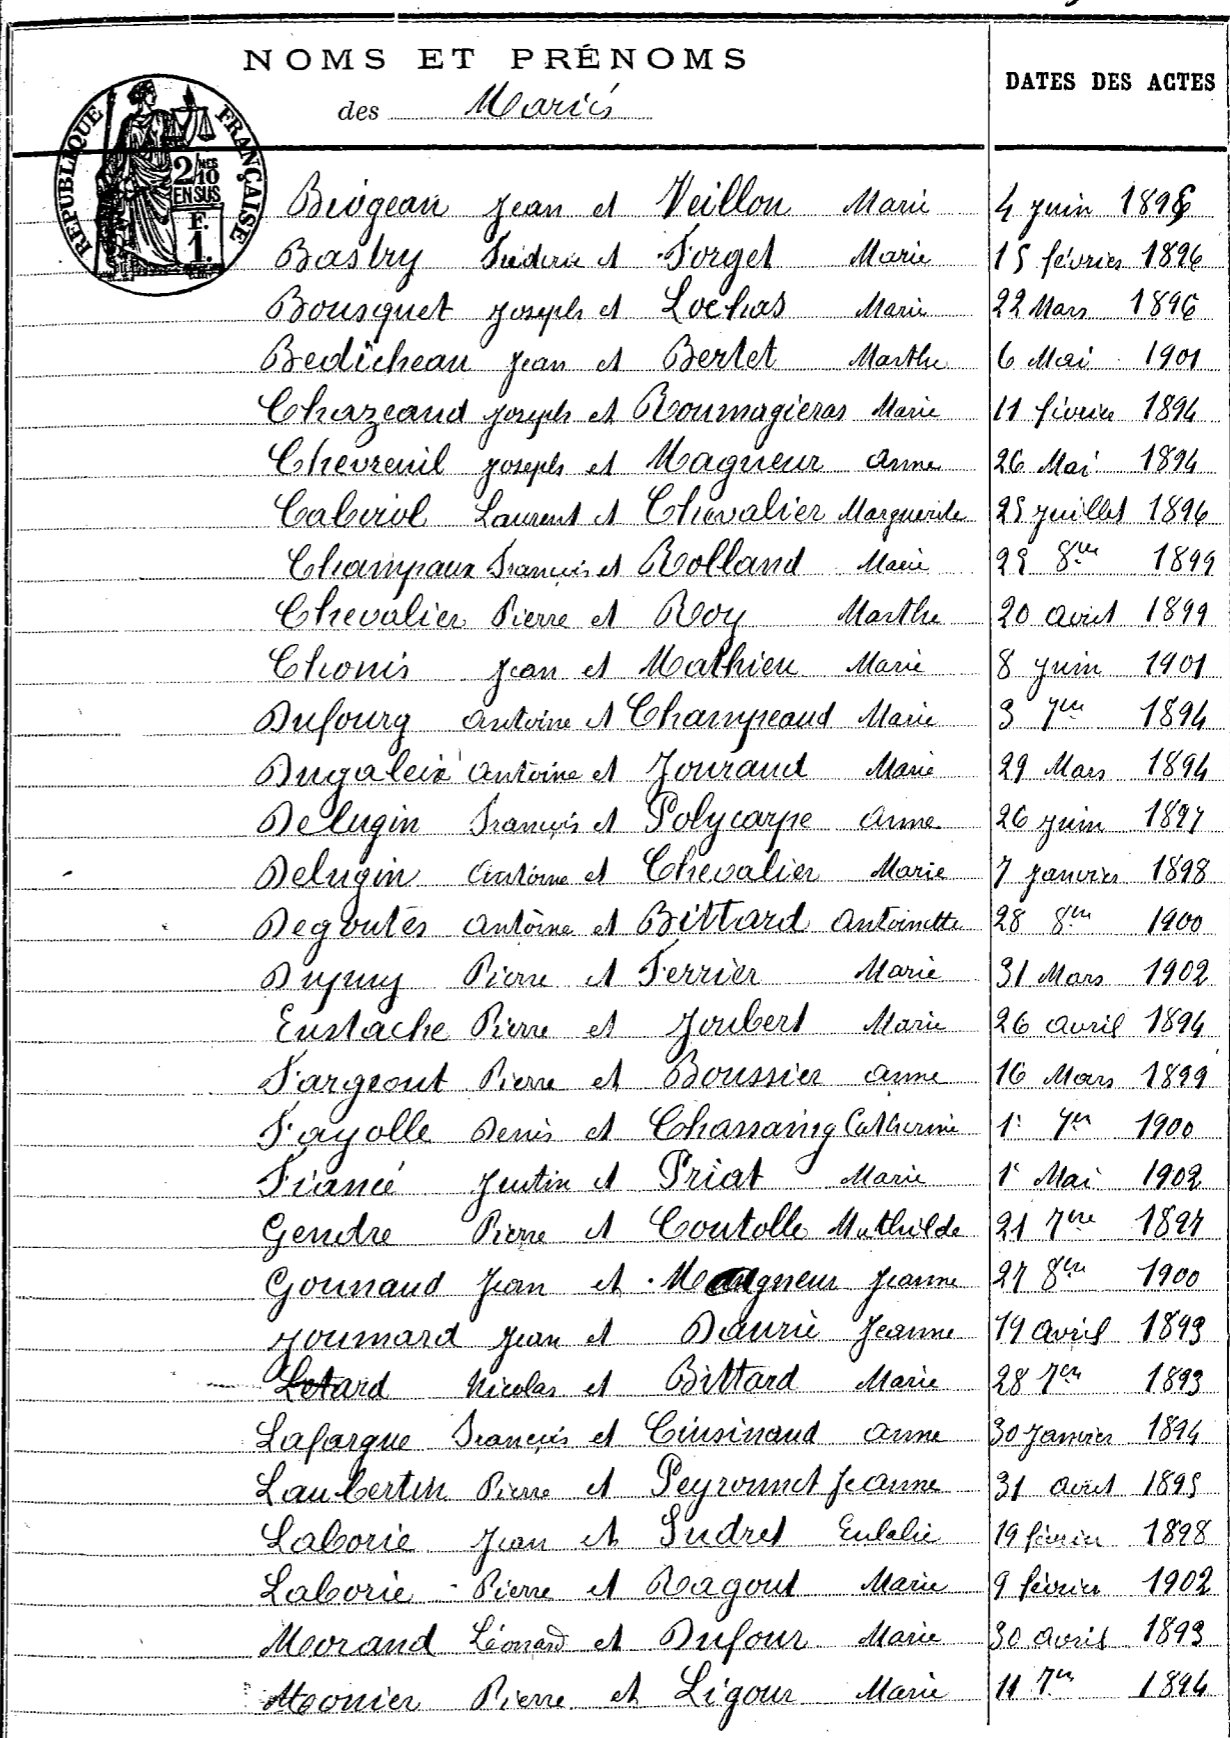 NOMS ET PRÉNOMS
des Mariés
DATES DES ACTES
RÉPUBLIQUE FRANÇAISE
2/10 MES
EN SUS
F.
1.
Biogeau Jean et Veillon Marie 4 juin 1896
Bastry Frédéric et Forget Marie 15 février 1896
Bousquet Joseph et Lochas Marie 22 Mars 1896
Bedicheau Jean et Bertet Marthe 6 Mai 1901
Chazeaud Joseph et Roumagieras Marie 11 février 1894
Chevreuil Joseph et Magneur Anne 26 Mai 1894
Cabirol Laurent et Chevalier Marguerite 25 juillet 1896
Champaux François et Rolland Marie 29 8bre 1899
Chevalier Pierre et Roy Marthe 20 août 1899
Chonis Jean et Mathieu Marie 8 juin 1901
Dufourg Antoine et Champeaud Marie 3 7bre 1894
Dugaleix Antoine et Jouraud Marie 29 Mars 1894
Delugin François et Polycarpe Anne 26 juin 1897
Delugin Antoine et Chevalier Marie 7 janvier 1898
Degoutes Antoine et Bittard Antoinette 28 8bre 1900
Dupuy Pierre et Ferrier Marie 31 Mars 1902
Eustache Pierre et Joubert Marie 26 avril 1894
Fargeout Pierre et Boussier Anne 16 Mars 1899
Fayolle Denis et Chassaing Catherine 1r 7bre 1900
Fiancé Justin et Priat Marie 1r Mai 1902
Gendre Pierre et Coutolle Mathilde 21 7bre 1897
Gounaud Jean et Magneur Jeanne 27 8bre 1900
Joumard Jean et Daurie Jeanne 19 avril 1893
Letard Nicolas et Bittard Marie 28 7bre 1893
Lafargue François et Cinsinaud Anne 30 janvier 1894
Laubertin Pierre et Peyronnet Jeanne 31 août 1895
Laborie Jean et Sudret Eulalie 19 février 1898
Laborie Pierre et Ragout Marie 9 février 1902
Morand Léonard et Dufour Marie 30 avril 1893
Monier Pierre et Ligour Marie 11 7bre 1894